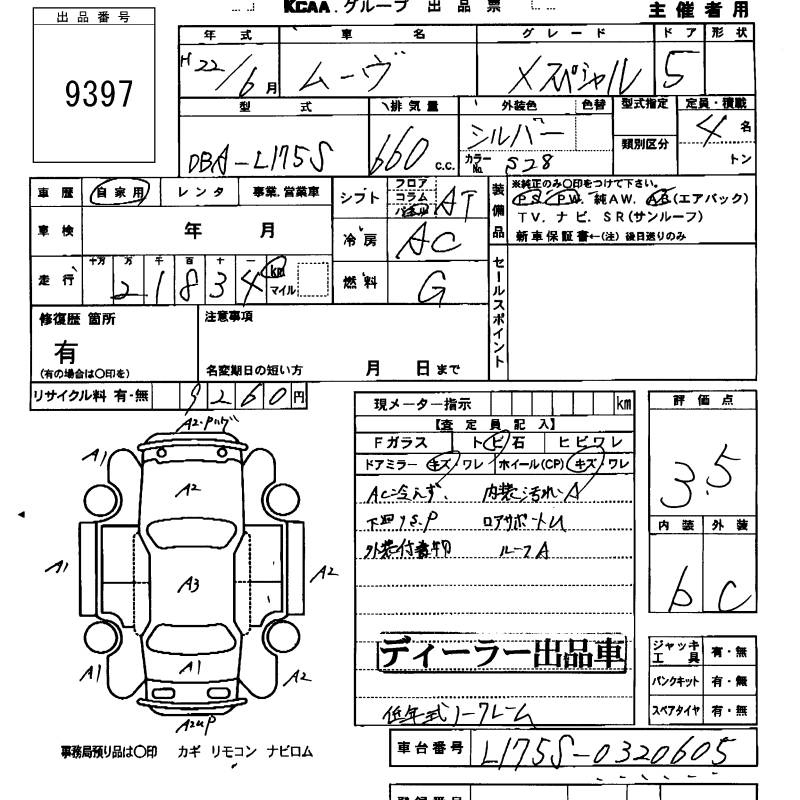 KCAA.グループ 出品票 主催者用
出品番号
9397
年式 車名 グレード ドア 形状
H22/6月 ムーヴ Xスペシャル 5
型式 排気量 外装色 色替 型式指定 定員・積載
DBA-L175S 660 c.c. シルバー カラーNo. S28 類別区分 4名 トン
車歴 自家用 レンタ 事業.営業車
車検 年 月
走行 十万 万 千 百 十 一 km マイル
21834
シフト フロア コラム パネル AT
冷房 AC
燃料 G
装備品 ※純正のみ〇印をつけて下さい。
PS. PW. 純AW. AB(エアバック)
TV. ナビ. SR(サンルーフ)
新車保証書←(注)後日送りのみ
セールスポイント
修復歴 箇所 注意事項
有
(有の場合は〇印を) 名変期日の短い方 月 日まで
リサイクル料 有・無 9260円
現メーター指示 km
【査定員記入】
Fガラス トビ石 ヒビワレ
ドアミラー キズ・ワレ ホイール(CP) キズ・ワレ
AC冷えず. 内装汚れA
下回りS.P ロアサポートU
外装付着物 ルーフA
ディーラー出品車
低年式ノークレーム
評価点
3.5
内装 外装
b C
ジャッキ工具 有・無
パンクキット 有・無
スペアタイヤ 有・無
A1 A2
A1 A3 A2
A1 A1 A2
A2UP
事務局預り品は〇印 カギ リモコン ナビロム
車台番号 L175S-0320605